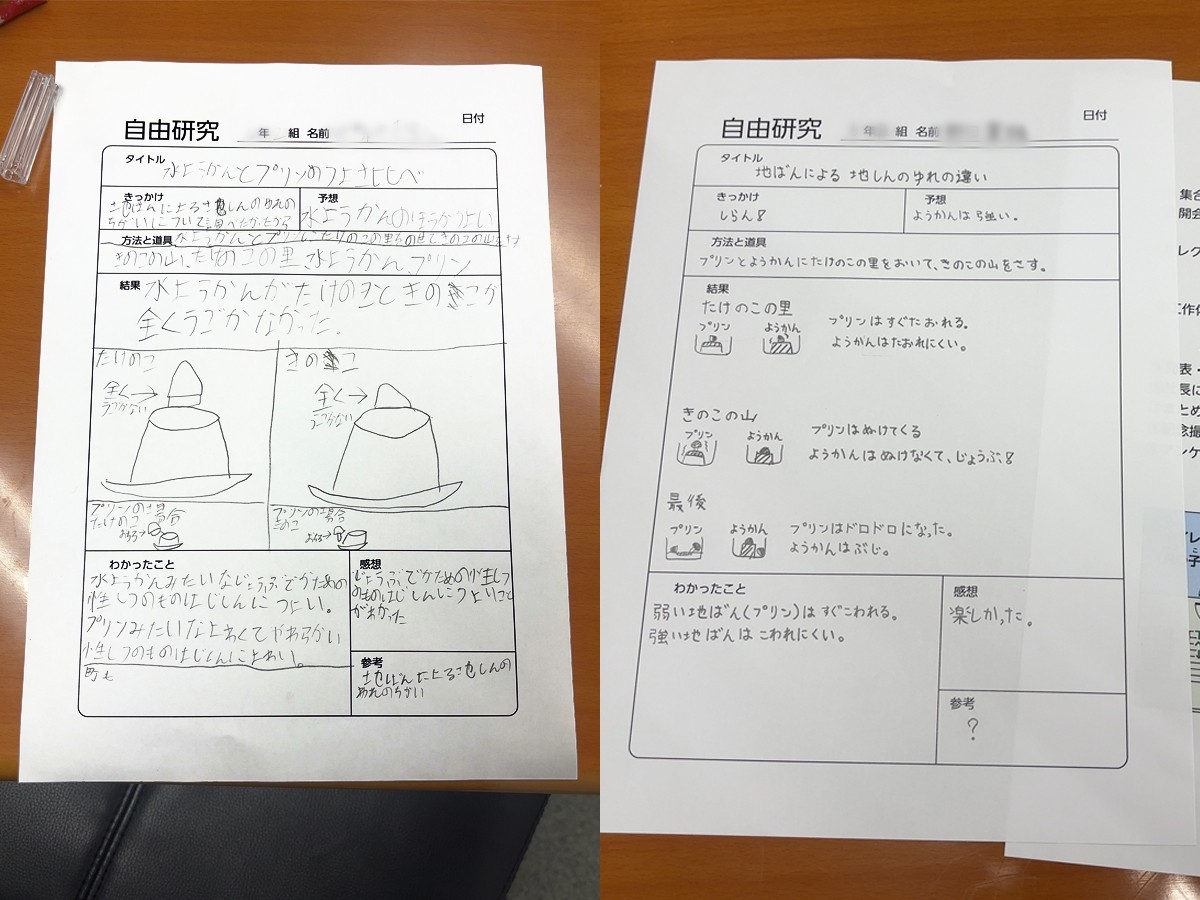 自由研究
年 組 名前
日付
タイトル
水ようかんとプリンのつよさヒヒベ
きっかけ
地ばんによる地しんのゆれの
ちがいについて調べたかったから
予想
水ようかんのほうがつよい
方法と道具
水ようかんとプリンにたけのこの里をのせてきのこの山をさす
きのこの山、たけのこの里、水ようかん、プリン
結果
水ようかんがたけの里ときのこが
全くうごかなかった。
たけのこ
全く→
うごかない
きのコ
全く→
うごかない
プリンの場合
たけのコ
おちる→
プリンの場合
きのコ
おちる→
わかったこと
水ようかんみたいなじょうぶでかための
性しつのものはじしんにつよい。
プリンみたいなよわくてやわらかい
性しつのものはじしんによわい。
町も
感想
じょうぶでかための性しつ
のものはじしんにつよいこと
がわかった
参考
地ばんによる地しんの
ゆれのちがい
自由研究
年 組 名前
日付
タイトル
地ばんによる 地しんのゆれの違い
きっかけ
しらん!
予想
ようかんは強い。
方法と道具
プリンとようかんにたけのこの里をおいて、きのこの山をさす。
結果
たけのこの里
プリン
ようかん
プリンはすぐたおれる。
ようかんはたおれにくい。
きのこの山
プリン
ようかん
プリンはぬけてくる
ようかんはぬけなくて、じょうぶ!
最後
プリン
ようかん
プリンはドロドロになった。
ようかんはぶじ。
わかったこと
弱い地ばん(プリン)はすぐこわれる。
強い地ばんはこわれにくい。
感想
楽しかった。
参考
?
集合
開会
レク
工作体
表・
長に
とめ
念撮
ンケ
イレ
子